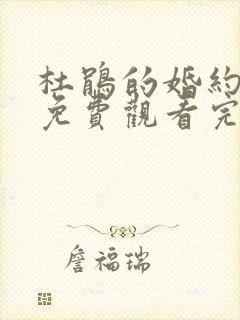 杜鵑的婚約
免費觀看完
詹福瑞